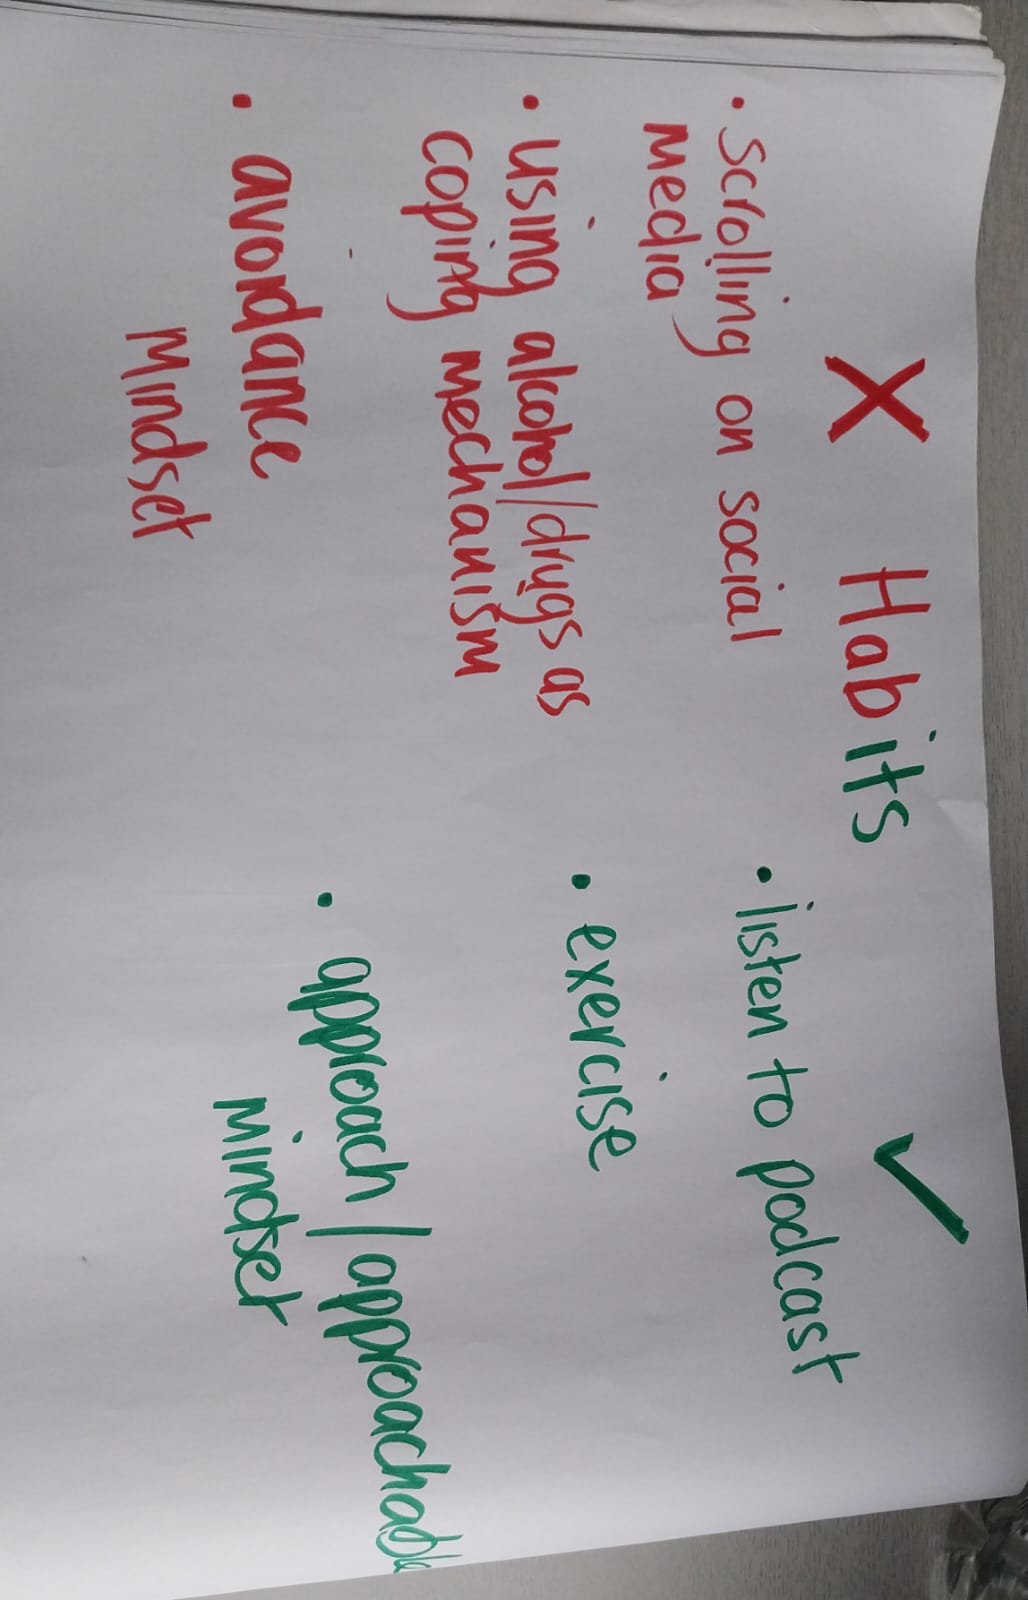 Habits
• scrolling on social
media
• using alcohol/drugs as
coping mechanism
• avoidance
mindset
• listen to podcast
• exercise
• approach/approachable
mindset